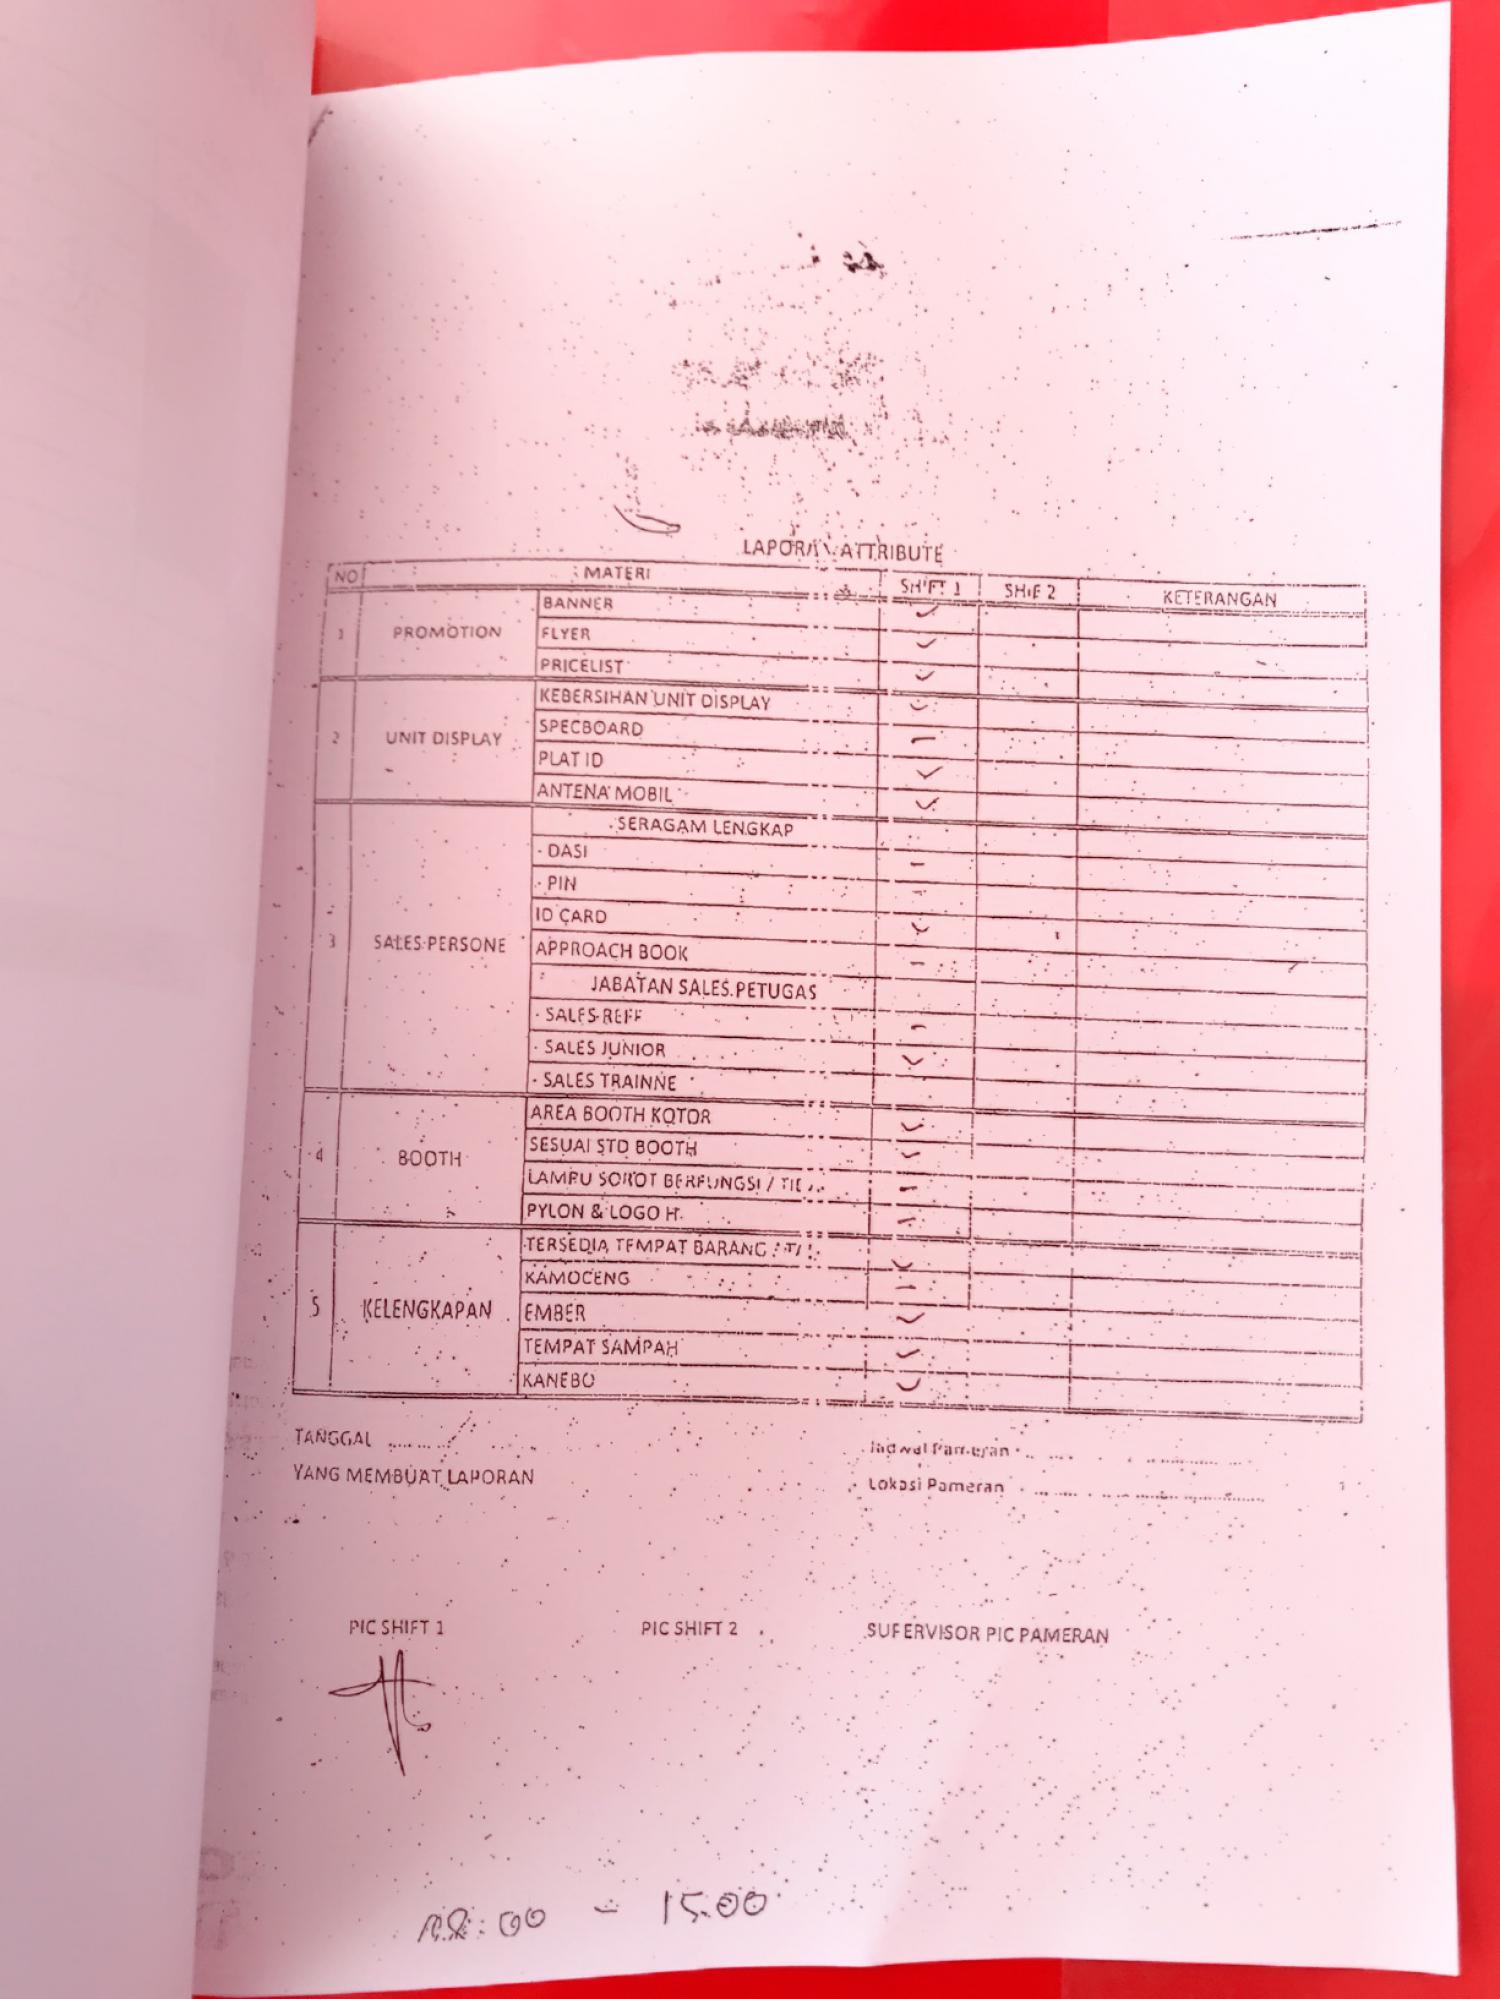 LAPORAN ATTRIBUTE
NO MATERI SHIFT 1 SHIF 2 KETERANGAN
1 PROMOTION BANNER ✓
FLYER ✓
PRICELIST ✓
2 UNIT DISPLAY KEBERSIHAN UNIT DISPLAY ✓
SPECBOARD -
PLAT ID ✓
ANTENA MOBIL ✓
3 SALES PERSONE SERAGAM LENGKAP
- DASI -
- PIN -
ID CARD ✓
APPROACH BOOK -
JABATAN SALES PETUGAS
- SALES REFF -
- SALES JUNIOR ✓
- SALES TRAINNE
4 BOOTH AREA BOOTH KOTOR ✓
SESUAI STD BOOTH ✓
LAMPU SOROT BERFUNGSI / -
PYLON & LOGO H -
5 KELENGKAPAN TERSEDIA TEMPAT BARANG / ✓
KAMOCENG -
EMBER ✓
TEMPAT SAMPAH ✓
KANEBO ✓
TANGGAL ..........
Jadwal Pameran
YANG MEMBUAT LAPORAN
Lokasi Pameran
PIC SHIFT 1 PIC SHIFT 2 SUPERVISOR PIC PAMERAN
- 15.00